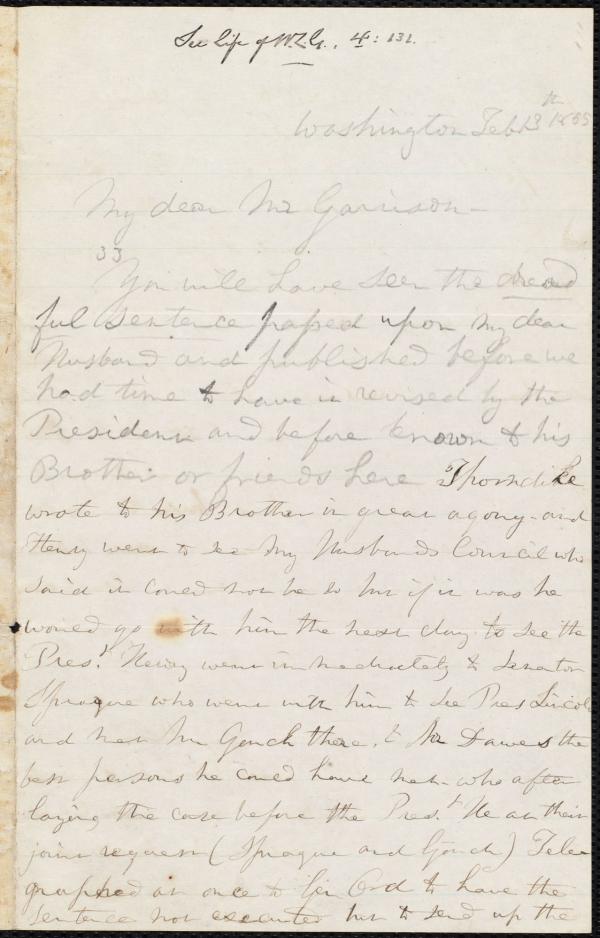 See Life of W.L.G., 4: 131.
Washington Feb 13th 1865
My dear Mr Garrison -
33
You will have seen the dread
ful sentence passed upon my dear
Husband and published before we
had time to have it revised by the
President and before known to his
Brother or friends here Thorndike
wrote to his Brother in great agony - and
Henry went to see my Husbands Council who
said it could not be so but if it was he
would go with him the next day to see the
Prest. Henry went immediately to Senator
Sprague who went with him to see Pres Lincoln
and met Mr Gooch there, & Mr Dawes the
best persons he could have met - who after
laying the case before the Prest. He at their
joint request (Sprague and Gooch) Tele
graphed at once to Gen Ord to have the
sentence not executed but to send up the